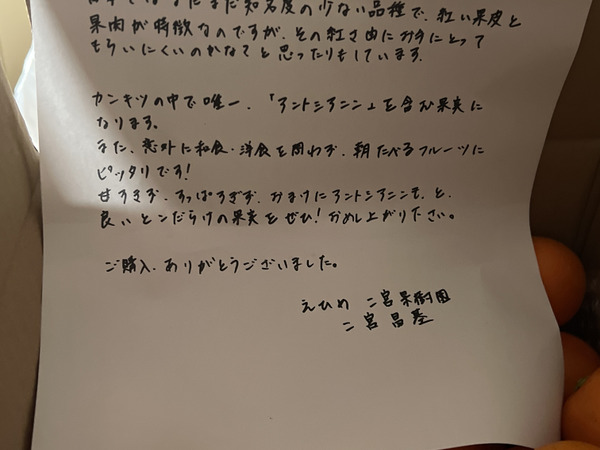 日本ではまだまだ知名度の少ない品種で、紅い果皮と
果肉が特徴なのですが、その紅さ由に お手にとって
もらいにくいのかなぁと思ったりもしています。
カンキツの中で唯一、「アントシアニン」を含む果実に
なります。
また、意外に和食・洋食を問わず、朝たべるフルーツに
ピッタリです!
甘すぎず、すっぱすぎず、おまけにアントシアニンも、と、
良いとこだらけの果実をぜひ!お召し上がり下さい。
ご購入、ありがとうございました。
えひめ 二宮果樹園
二宮昌基